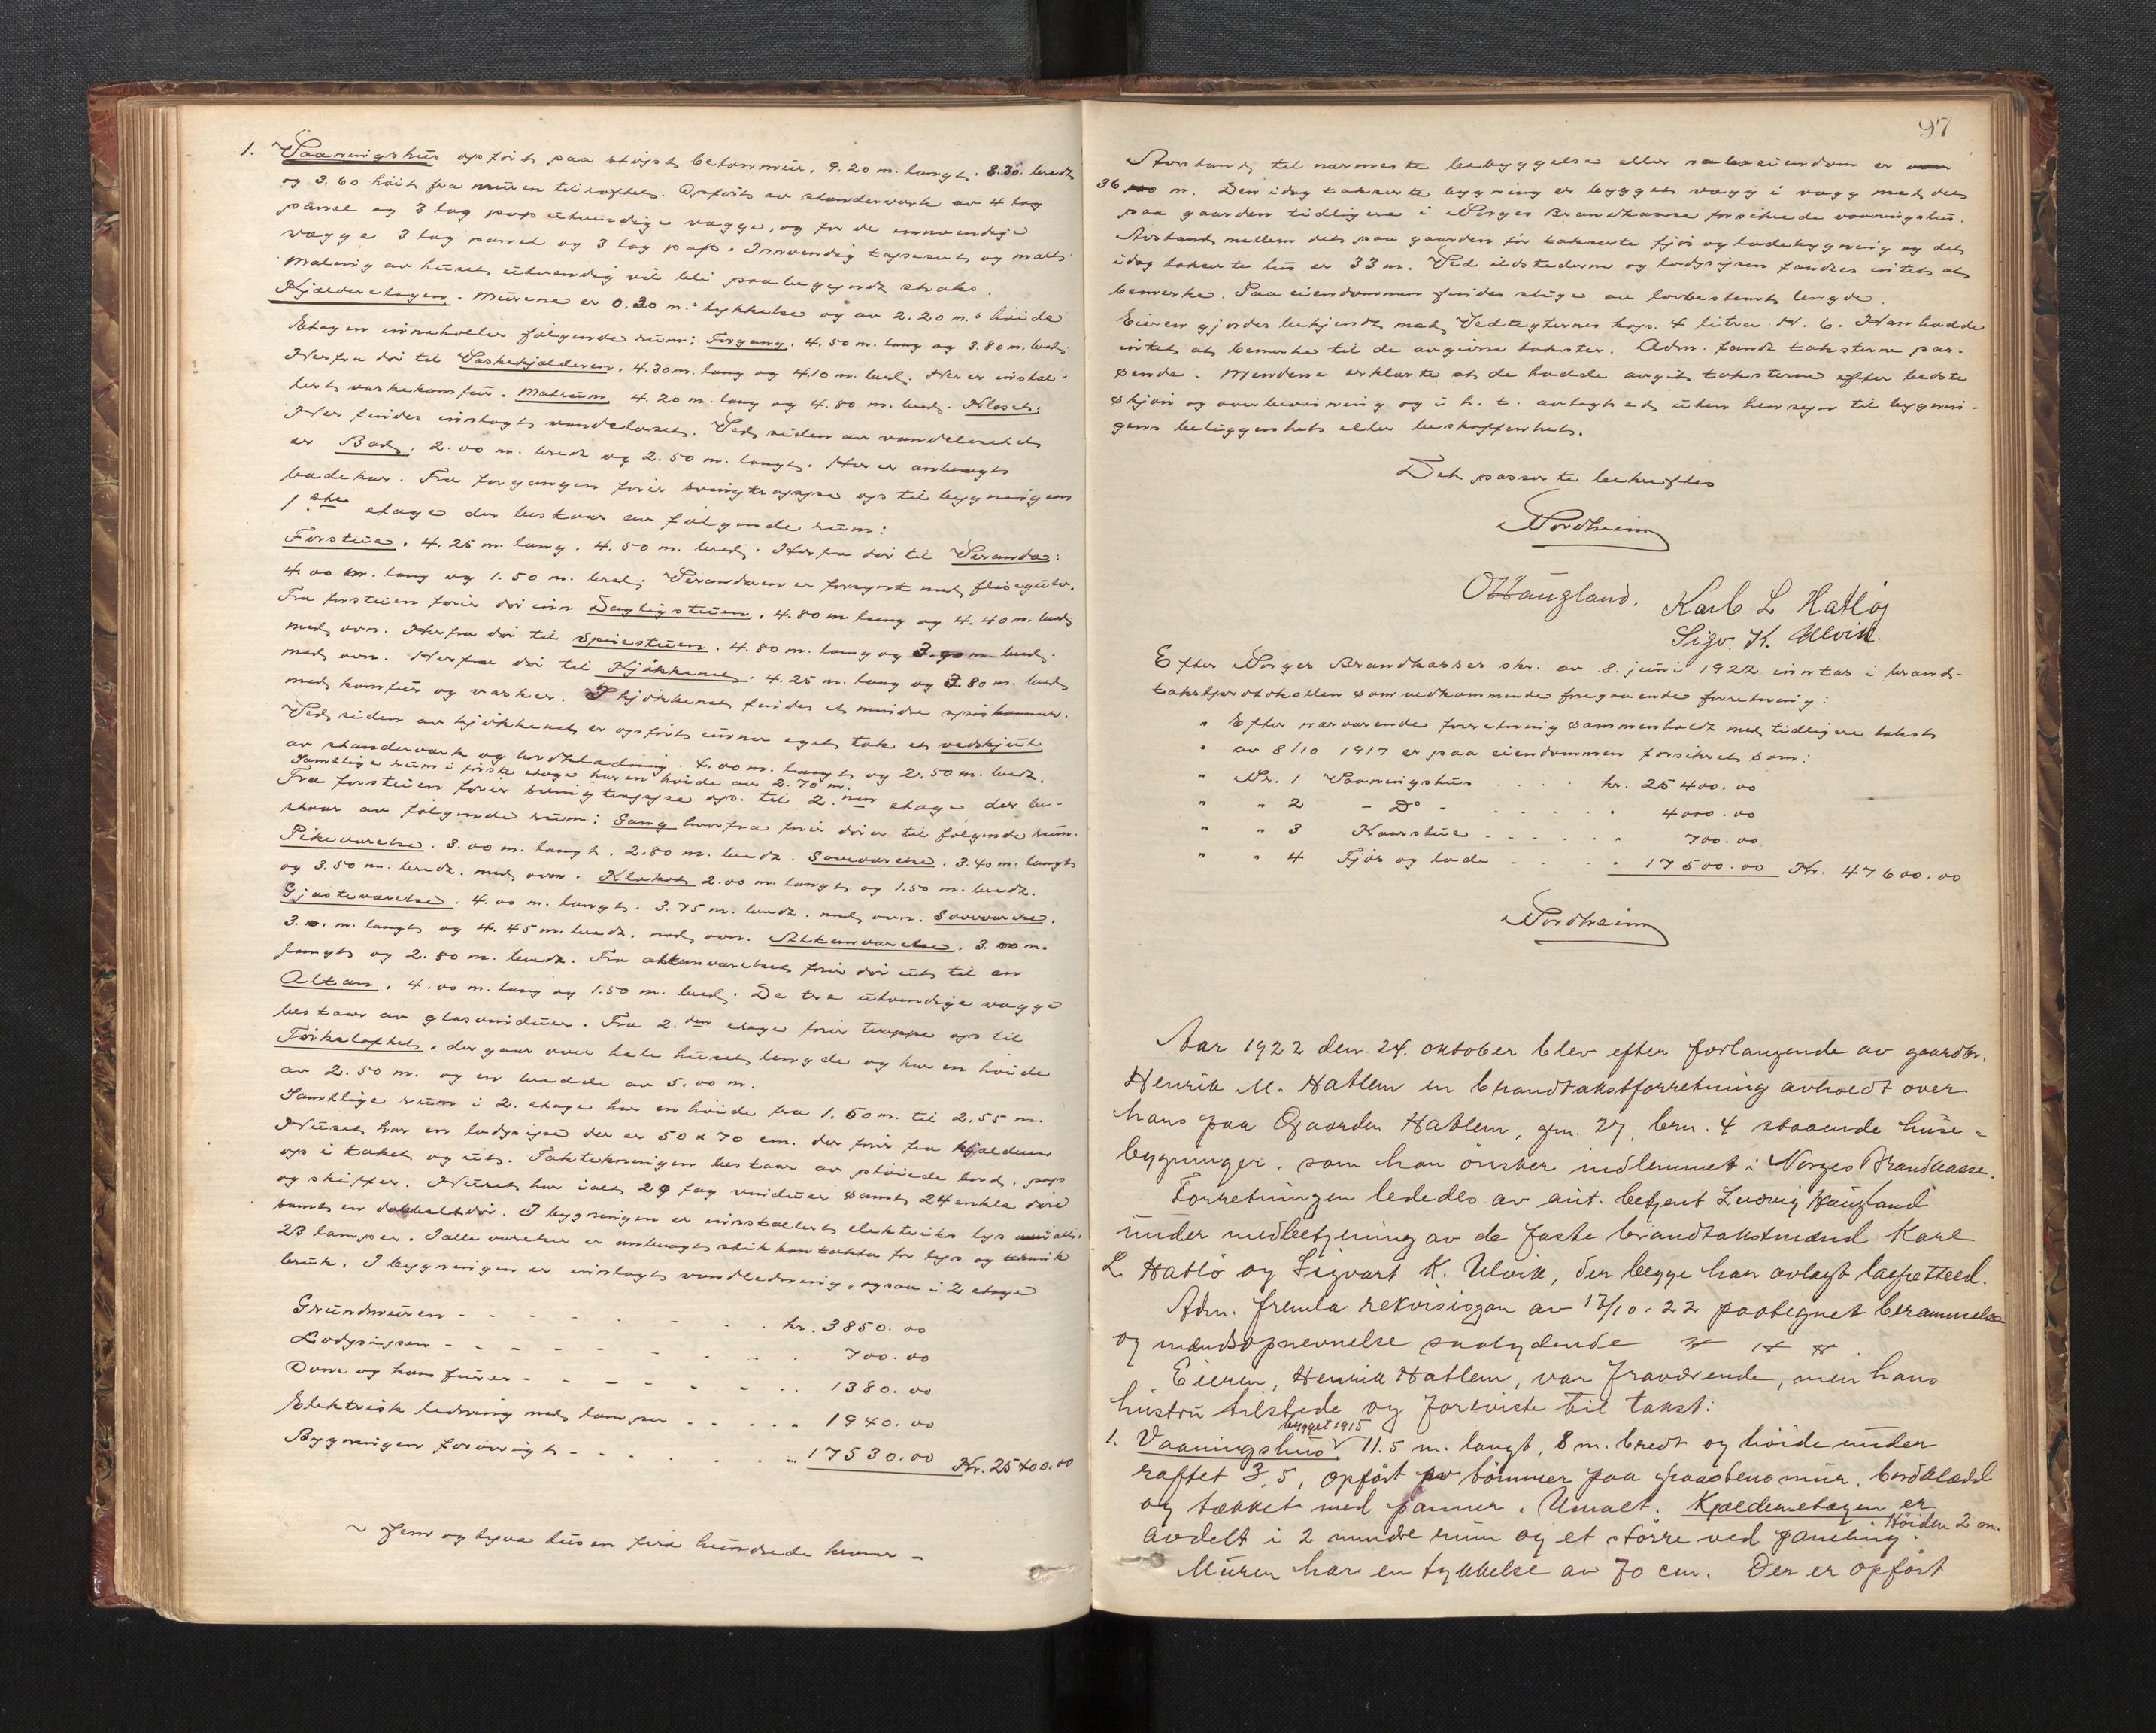 1. Vaaningshus opført paa støpt betonmur, 9.20 m. langt. 8.30. bredt
og 3.60 høit fra muren til raftet. Opført av standerverk av 4 lag
panel og 3 lag pap utvendige vægge, og for de innvendige
vægge 3 lag panel og 3 lag pap. Innvendig tapsert og malt.
Maling av huset utvendig vil bli paabegyndt straks.
Kjælderetagen. Murene er 0.30 m.s tykkelse og av 2.20 m.s høide
Etagen inneholder følgende rum: Forgang. 4.50 m. lang og 3.80 m. bred.
Herfra dør til Vaskekjælderen. 4.30 m. lang og 4.10 m. bred. Her er instal-
lert vaskekomfur. Matrum 4.20 m. lang og 4.80 m. bred. Kloset:
Her findes innlagt vandcloset. Ved siden av vandclosettet
er Bad. 2.00 m. bredt og 2.50 m. langt. Her er anbragt
badekar. Fra forgangen fører svingtrappe op til bygningens
1ste etage der bestaar av følgende rum:
Forstue. 4.25 m. lang. 4.50 m. bred. Herfra dør til Veranda:
4.00 m. lang og 1.50 m. bred. Verandaen er forsynt med flisegulv.
Fra forstuen fører dør inn Dagligstuen. 4.80 m lang og 4.40 m. bred
med ovn. Herfra dør til Spisestuen. 4.80 m. lang og 3.90 m. bred.
med ovn. Herfra dør til Kjøkkenet. 4.25 m. lang og 3.80 m. bred
med komfur og vasker. I kjøkkenet findes et mindre spiskammer.
Ved siden av kjøkkenet er opført under eget tak et vedskjul
av standerverk og bordkledning. 4.00 m. langt og 2.50 m. bredt.
Samtlige rum i første etage har en høide av 2.70 m.
Fra forstuen fører svingtrappe op til 2.nen etage der be-
staar av følgende rum: Gang hvorfra fører dører til følgende rum.
Pikeværelse. 3.00 m. langt. 2.80 m. bredt. Soveværelse. 3.40 m. langt
og 3.50 m. bredt. med ovn. Kloset 2.00 m. langt og 1.50 m. bredt.
Gjesteværelse. 4.00 m. langt. 3.75 m. bredt. med ovn. Soveværelse.
m. langt og 4.45 m. bredt. med ovn. Altanværelse. 3.00 m.
langt og 2.80 m. bredt. Fra altanværelset fører dør ut til en
Altan. 4.00 m. lang og 1.50 m. bred. De tre utvendige vægge
bestaar av glasvinduer. Fra 2.den etage fører trappe op til
Tørkeloftet. der gaar over hele husets lengde og har en høide
av 2.50 m. og en bredde av 5.00 m.
Samtlige rum i 2. etage har en høide fra 1.60 m. til 2.55 m.
Huset har en lodpipe der er 50 x 70 cm. der fører fra kjælderen
op i taket og ut. Taktekningen bestaar av pløiede bord, pap
og skiffer. Huset har ialt 29 fag vinduer samt 24 enkle døre
samt en dobbeltdør. I bygningen er innstallert elektrisk lys ialt.
23 lamper. I alle værelser er anbragt stikkontakter for lys og teknik
bruk. I bygningen er innlagt vandledning, ogsaa i 2 etage
Grundmuren - - - - - - kr. 3850.00
Lodpipen - - - - - - 700.00
Ovne og komfurer - - - - - - 1380.00
Elektrisk ledning med lamper - - - - 1940.00
Bygningen forøvrigt - - - - - 17530.00 Kr. 25400.00
~ Fem og tyve tusen fire hundrede kroner -
97
Avstand til nærmeste bebyggelse eller naboeiendom er
36 m. Den idag takserte bygning er bygget vegg i vegg med det
paa gaarden tidligere i Norges Brandkasse forsikrede vaaningshus.
Avstand mellem det paa gaarden før takserte fjøs og ladebygning og det
idag takserte hus er 33 m. Ved ildstederne og lodpipen fandtes intet at
bemerke. Paa eiendommen findes stige av lovbestemt lengde.
Eieren gjordes bekjendt med Vedtegternes kap. 4 litra N. 6. Han hadde
intet at bemerke til de avgivne takster. Adm. fandt taksterne pas-
sende. Mendene erklærte at de hadde avgit taksterne efter bedste
skjøn og overbevisning og i h. t. avlagt ed uten hensyn til bygnin-
gens beliggenhet eller beskaffenhet.
Det passerte bekreftes
Nordheim
O Haugland. Karl L Hatløy
Sigv. K. Ulvik.
Efter Norges Brandkasses skr. av 8. juni 1922 inntas i brand-
takstprotokollen som vedkommende foregaaende forretning:
" Efter nærværende forretning sammenholdt med tidligere takst
" av 8/10 1917 er paa eiendommen forsikret som:
" Nr. 1 Vaaningshus . . . kr. 25400.00
" " 2 - Do - . . . . " 4000.00
" " 3 Kaarstue - - - - - " 700.00
" " 4 Fjøs og lade - - - " 17500.00 Kr. 47600.00
Nordheim
Aar 1922 den 24. oktober blev efter forlangende av gaardbr.
Henrik M. Hatlem en brandtakstforretning avholdt over
hans paa Gaarden Hatlem, gn. 27, brn. 4 staaende huse-
bygninger, som han ønsker indlemmet i Norges Brandkasse.
Forretningen lededes av aut. betjent Ludvig Haugland
under medbetjening av de faste brandtakstmænd Karl
L Hatlø og Sigvart K. Ulvik, der begge har avlagt lagretteed.
Adm. fremla rekvisisjon av 17/10.22 paategnet berammelse
og mændsopnevnelse saalydende
Eieren, Henrik Hatlem, var fraværende, men hans
hustru tilstede og foreviste til takst:
bygget 1915
1. Vaaningshus 11.5 m. langt, 8 m. bredt og høide under
raftet 3,5, opført av tømmer paa graastensmur, bordklædd
og tækket med panner. Umalt. Kjælderetagen er
Høiden 2 m.
avdelt i 2 mindre rum og et større ved paneling.
Muren har en tykkelse av 70 cm. Der er opført